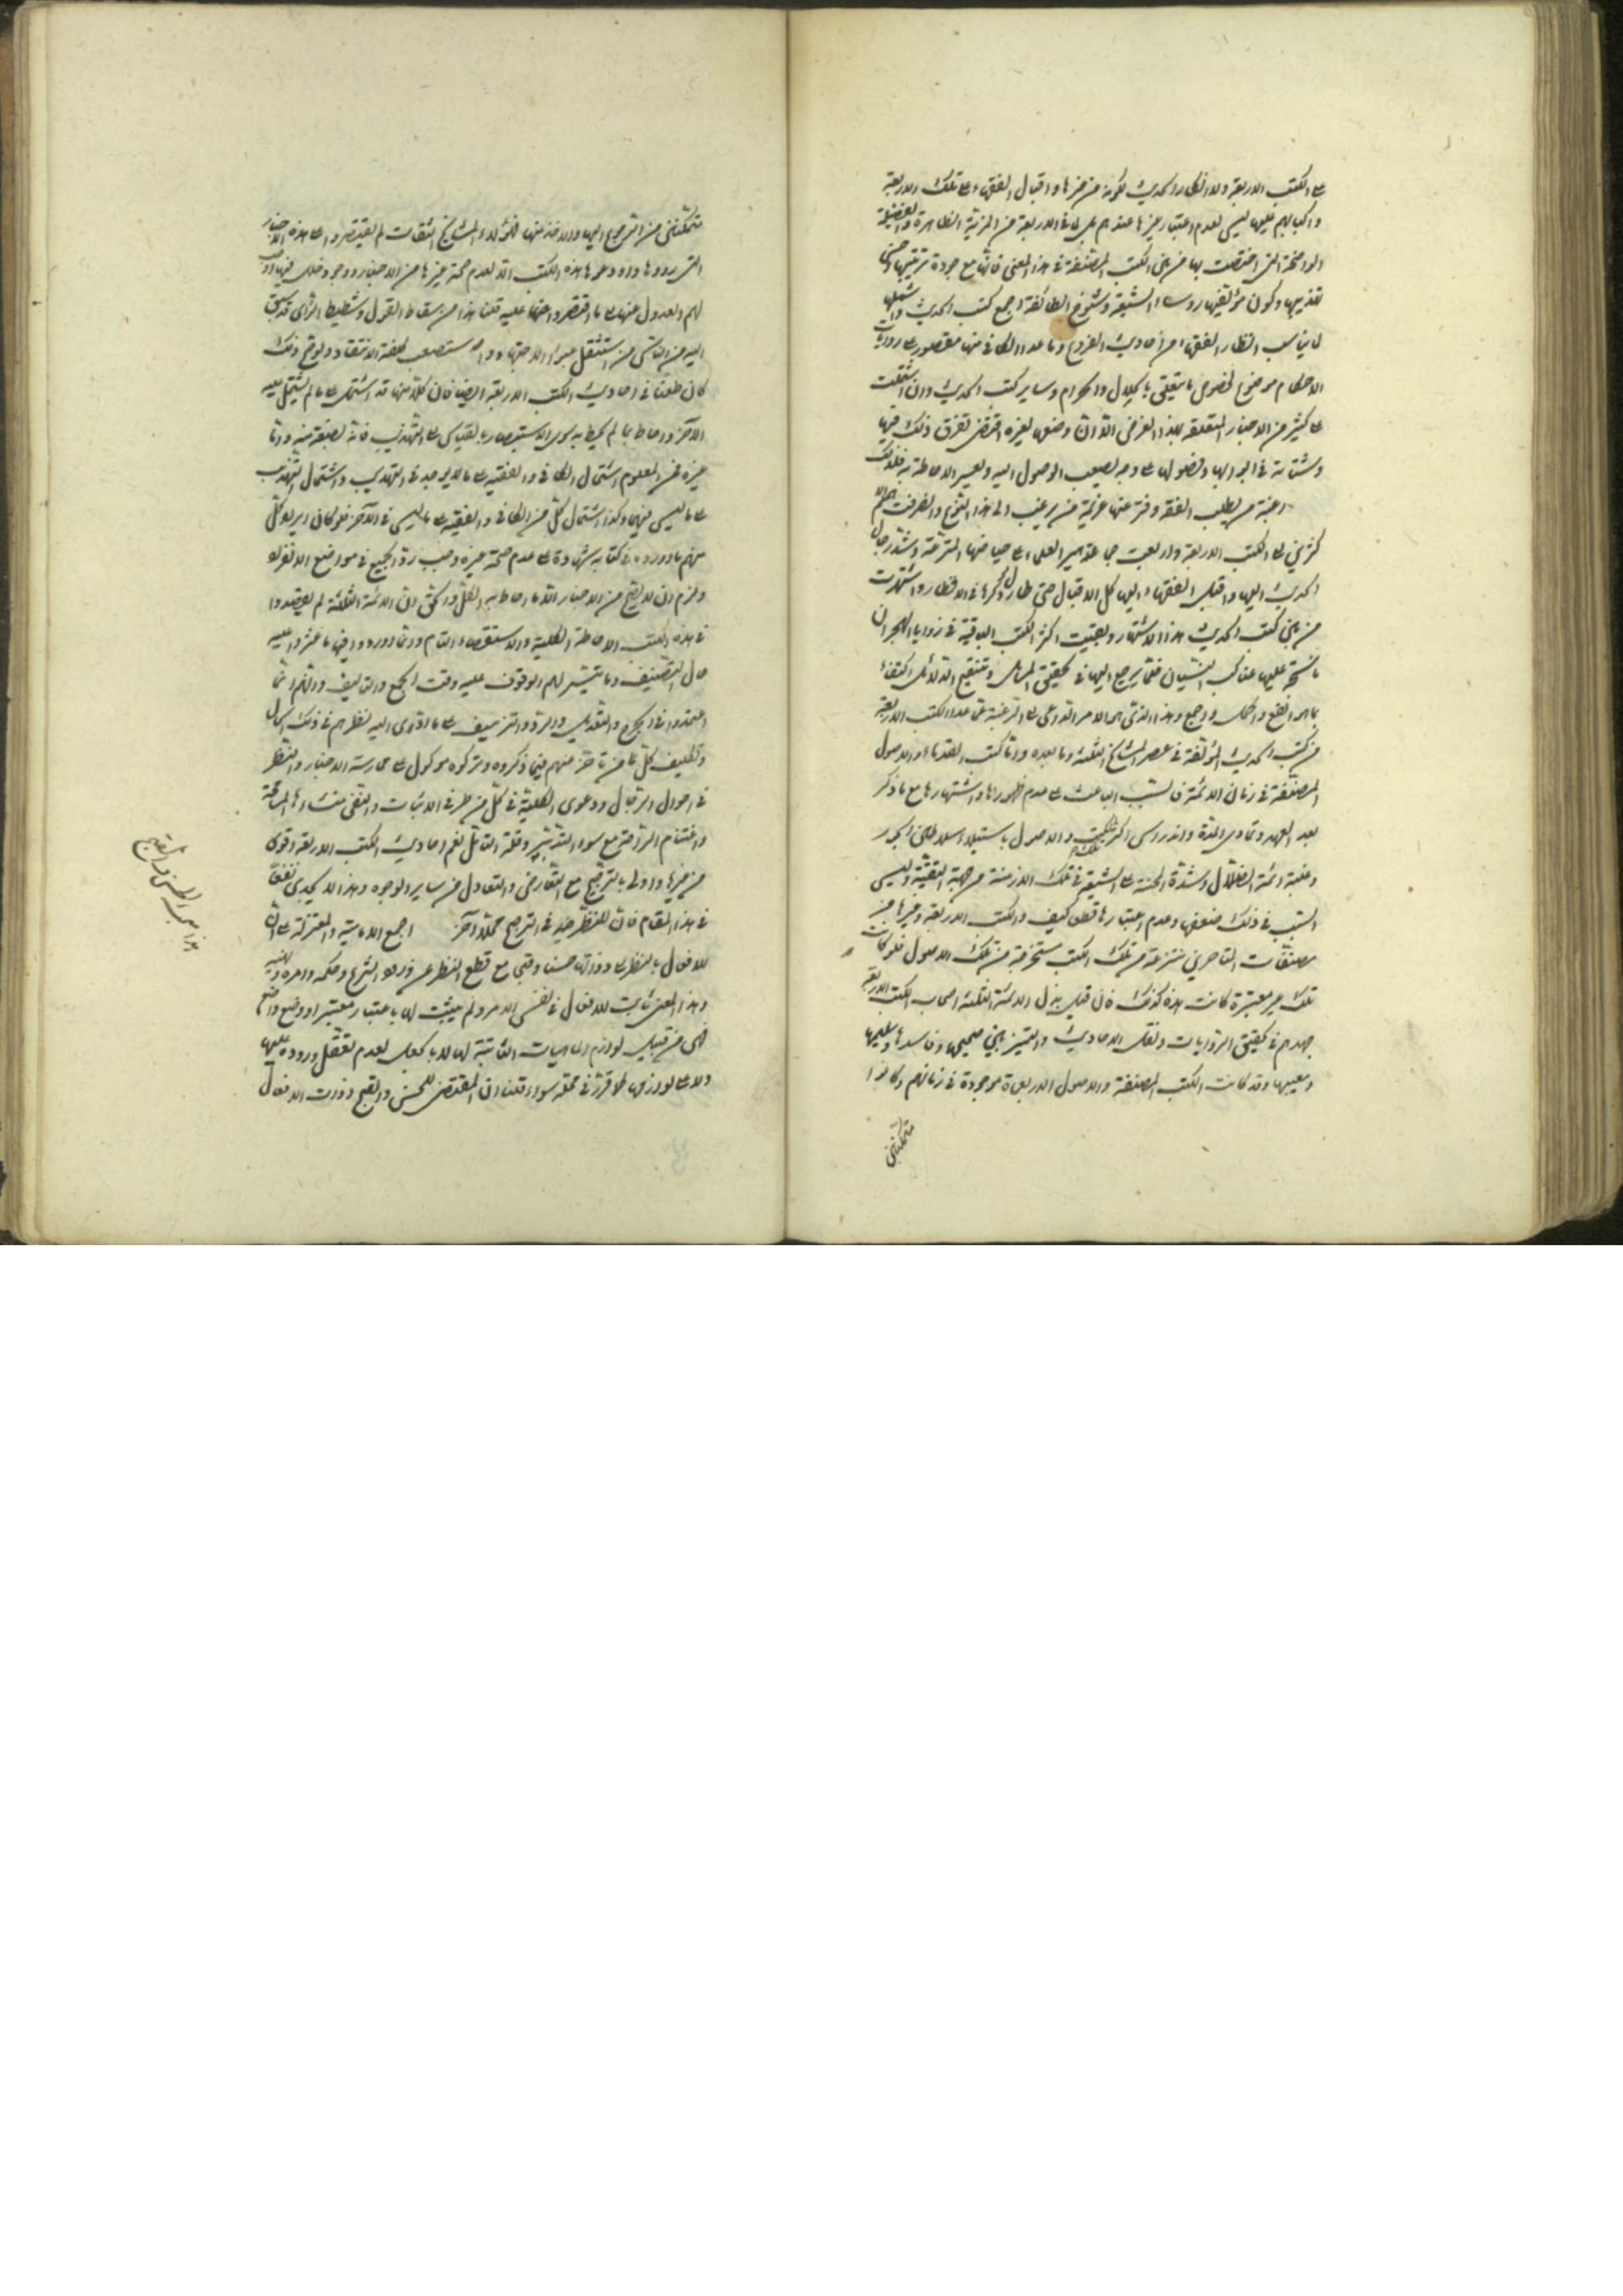 على الكتب الاربعة ولا انكار الحديث لكونه من غيرها واقبال الفقهاء على تلك الاربعة
واكبابهم عليها ليس لعدم اعتبار غيرها عندهم بل لما في الاربعة من المزية الظاهرة والفضيلة
الواضحة التي اختصت بها من بين الكتب المصنفة في هذا المعنى فانها مع جودة ترتيبها وحسن
تهذيبها وكون مؤلفيها رؤساء الشيعة وشيوخ الطائفة اجمع كتب الحديث واشملها
لما يناسب انظار الفقهاء من احاديث الفروع وما عدا الكافي منها مقصور على روايات
الاحكام موضوع لخصوص ما يتعلق بالحلال والحرام وساير كتب الحديث وان اشتملت
على كثير من الاخبار المتعلقة بهذا الغرض الا ان وضعها لغيره اقتضى تفرق ذلك فيها
وشتاته في ابوابها وفصولها على وجه يصعب الوصول اليه ويعسر الاحاطة به فلذلك
رغبة من يطلب الفقه وفتر عنها عزيمة من يرغب الى هذا النحو وانصرفت همم
الى الكتب الاربعة واربعت جماهير العلماء حياضها المترعة وشد رجال
الحديث اليها واقبل الفقهاء اليها كل الاقبال حتى طار ذكرها في الاقطار واشتهرت
من بين كتب الحديث هذا الاشتهار وبقيت اكثر الكتب الباقية في زوايا الهجران
ما نسج عليها عناكب النسيان فقلما يرجع اليها في تحقيق المسائل وتنقيح الدلائل اكتفاء
بما هو انفع واكمل واجمع وهذا الذي هو الامر الداعي الى الرغبة عما عدا الكتب الاربعة
من كتب الحديث المؤلفة في عصر المشايخ الثلثة وما بعده واما كتب القدماء والاصول
المصنفة في زمان الائمة فالسبب الباعث على عدم ظهورها واشتهارها مع ما ذكر
بعد العهد وتمادي المدة واندراس اكثر تلك الكتب والاصول باستيلاء سلاطين الجور
وغلبة ائمة الضلال وشدة المحنة على الشيعة في تلك الازمنة من جهة التقية وليس
السبب في ذلك ضعفها وعدم اعتبارها قطعا كيف والكتب الاربعة وغيرها من
مصنفات المتاخرين منتزعة من تلك الكتب مستخرجة من تلك الاصول فلو كانت
تلك غير معتبرة كانت هذه كذلك فان قيل بذل الائمة الثلثة اصحاب الكتب الاربعة
جهدهم في تحقيق الروايات ونقل الاحاديث والتميز بين صحيحها وفاسدها وسليمها
ومعيبها وقد كانت الكتب المصنفة والاصول الاربعمائة موجودة في زمانهم وكانوا
متمكنين
متمكنين من الرجوع اليها والاخذ منها فهؤلاء المشايخ الثقات لم يقتصروا على هذه الاخبار
التي رووها واودعوها هذه الكتب الا لعدم صحة غيرها من الاخبار ووجود خلل فيها اوجب
لهم العدول عنها الى ما اقتصروا عليه قلنا هذا من سقاط القول وشطيط الراي قد سبق
اليه من الناس من استثقل عبء الاجتهاد واستصعب كلفة الانتقاد ولو تم ذلك
كان طعنا في احاديث الكتب الاربعة ايضا فان كلا منها قد اشتمل على ما لم يشتمل عليه
الاخر واحاط بما لم يحط به سوى الاستبصار بالقياس الى التهذيب فانه بضعة منه واما
غيره فمن المعلوم اشتمال الكافي والفقيه على ما لا يوجد في التهذيب واشتمال التهذيب
على ما ليس فيهما وكذا اشتمال كل من الكافي والفقيه على ما ليس في الاخر فلو كان ايراد كل
منهم ما اورده في كتابه شهادة على عدم صحة غيره وجب رد الجميع في مواضع الانفراد
ولزم ان لا يصح من الاخبار الا ما احاط به الكل والحق ان الائمة الثلثة لم يقصدوا
في هذه الكتب الاحاطة الكلية والاستقصاء التام وانما اوردوا فيها ما عثروا عليه
حال التصنيف وما تيسر لهم الوقوف عليه وقت الجمع والتاليف وانهم انما
اعتمدوا في الجرح والتعديل والرد والتزييف على ما ادى اليه نظرهم في ذلك الحال
وتكليف كل من تاخر عنهم فيما ذكروه وتركوه موكول الى ممارسة الاخبار والنظر
في احوال الرجال ودعوى الكلية في كل من طرفي الاثبات والنفي منشاءها المسامحة
واغتنام الراحة مع سوء التدبير وقلة التامل نعم احاديث الكتب الاربعة اقوى
من غيرها واولى بالترجيح مع التعارض والتعادل من ساير الوجوه وهذا لا يجدي نفعا
في هذا المقام فان للنظر فيه في الترجيح محلا اخر اجمع الامامية والمعتزلة على ان
للافعال بالنظر الى ذواتها حسنا وقبحا مع قطع النظر عن ورود الشرع وحكمه وامره ونهيه
وهذا المعنى ثابت للافعال في نفس الامر ولم يثبت لها باعتبار معتبر او وضع واضع
فهي من قبيل لوازم الماهيات الثابتة لها لا بالجعل لعدم تعقل وروده عليها
ولا على لوازمها كما قرر في محله سواء قلنا ان المقتضى للحسن والقبح ذوات الافعال
هذا مبحث الحسن والقبح